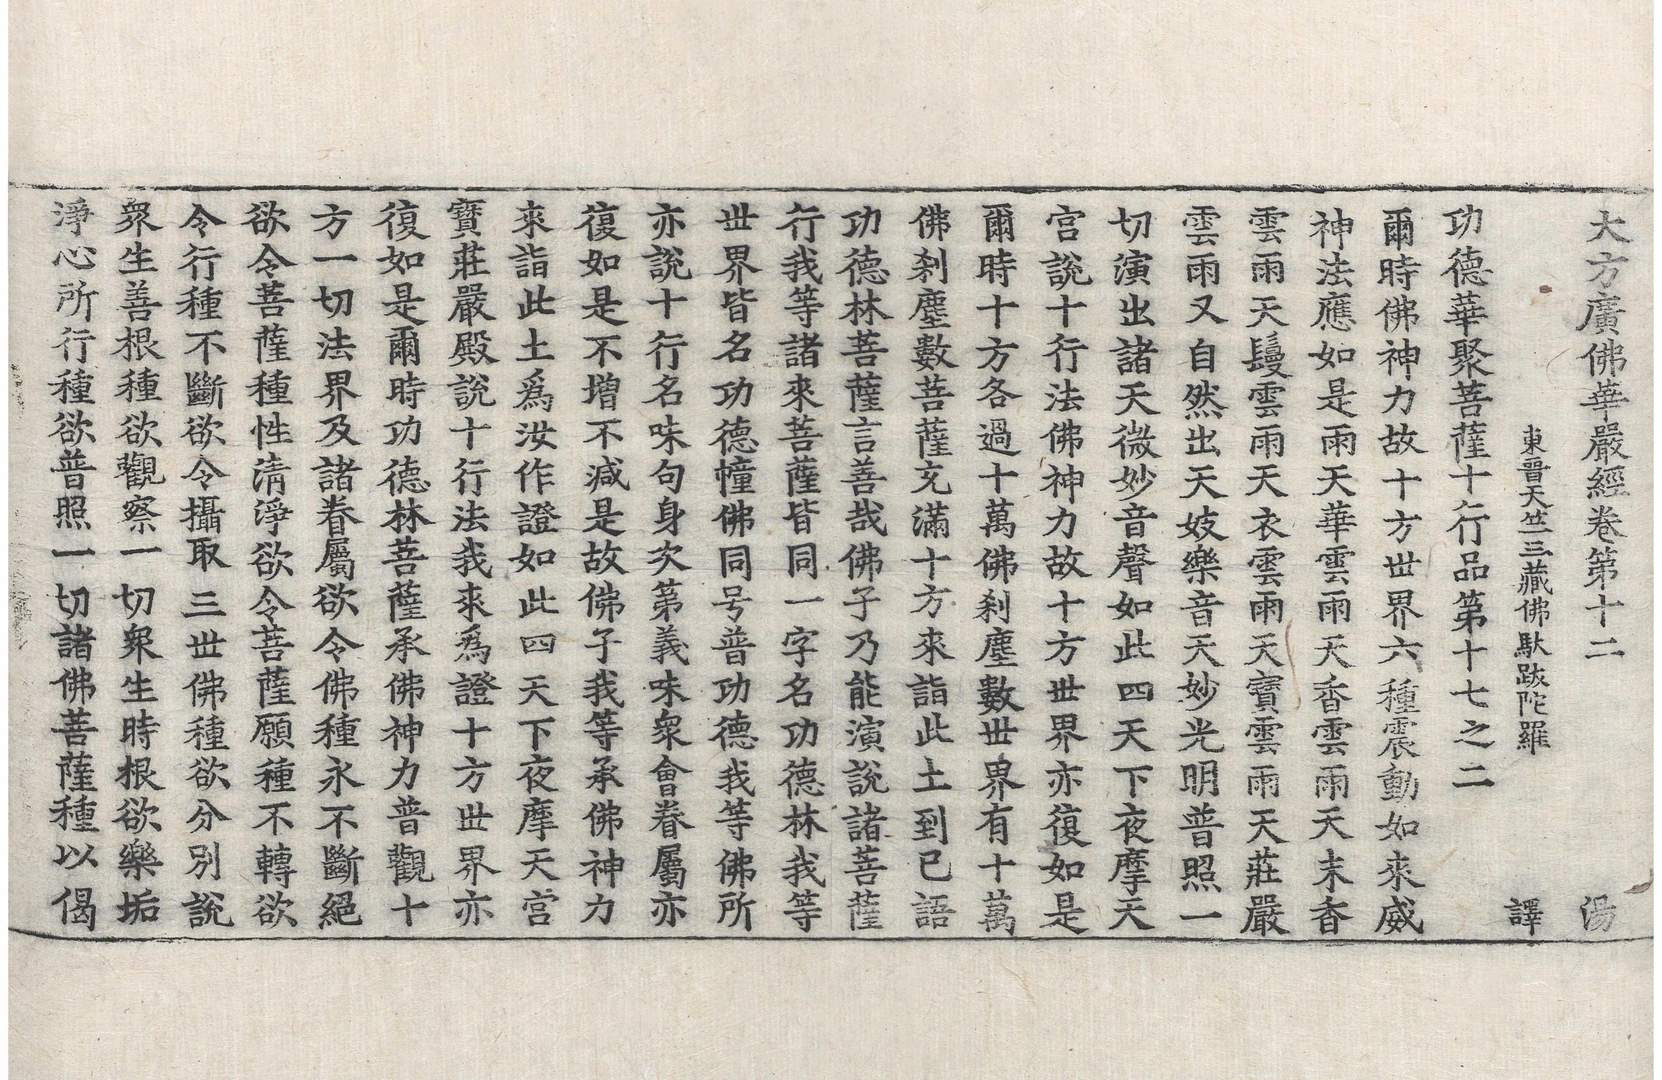 大方廣佛華嚴經卷第十二 湯
東晉天竺三藏佛馱跋陀羅 譯
功德華聚菩薩十行品第十七之二
爾時佛神力故十方世界六種震動如來威
神法應如是雨天華雲雨天香雲雨天末香
雲雨天鬘雲雨天衣雲雨天寶雲雨天莊嚴
雲雨又自然出天妓樂音天妙光明普照一
切演出諸天微妙音聲如此四天下夜摩天
宮說十行法佛神力故十方世界亦復如是
爾時十方各過十萬佛剎塵數世界有十萬
佛剎塵數菩薩充滿十方來詣此土到已語
功德林菩薩言善哉佛子乃能演說諸菩薩
行我等諸來菩薩皆同一字名功德林我等
世界皆名功德幢佛同号普功德我等佛所
亦說十行名味句身次第義味衆會眷屬亦
復如是不增不減是故佛子我等承佛神力
來詣此土爲汝作證如此四天下夜摩天宮
寶莊嚴殿說十行法我來爲證十方世界亦
復如是爾時功德林菩薩承佛神力普觀十
方一切法界及諸眷屬欲令佛種永不斷絕
欲令菩薩種性清淨欲令菩薩願種不轉欲
令行種不斷欲令攝取三世佛種欲分別說
衆生善根種欲觀察一切衆生時根欲樂垢
淨心所行種欲普照一切諸佛菩薩種以偈